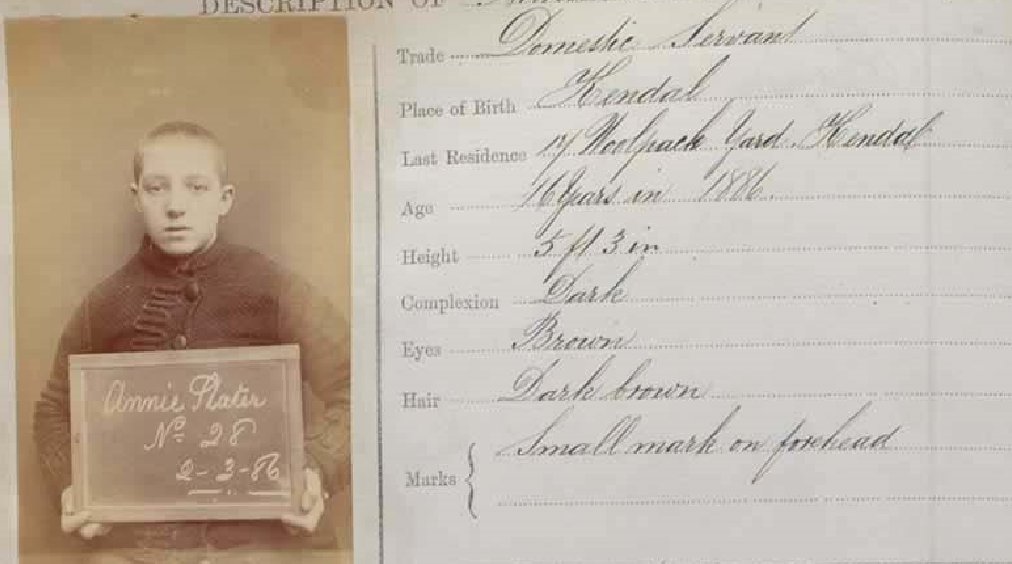 DESCRIPTION OF
Trade Domestic Servant
Place of Birth Kendal
Last Residence 17 Woolpack Yard. Kendal
Age 16 Years in 1886.
Height 5 ft 3 in
Complexion Dark
Eyes Brown
Hair Dark brown
Marks { Small mark on forehead
Annie Slater
No. 28
2-3-86